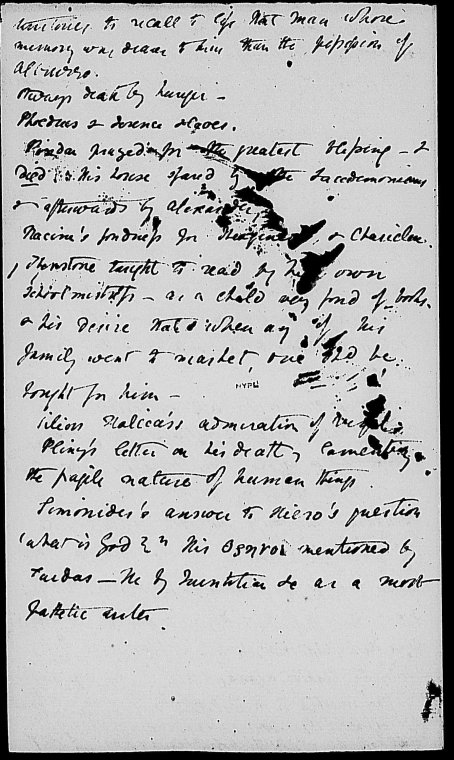 territories to recall to life that man whose
memory was dearer to him than the possession of

Otways death by hunger –
Phœdrus & Terence slaves.
Pindar prayed for the greatest blessing – &
died; his house spared by the Lacedemonians
& afterwards by Alexander,
Racine's fondness for Theagenes & Chariclea.
Shenstone taught to read by his own
School mistress – as a child very fond of books
& his desire that when any of his
family went to market, one shd be
bought for him –
NYPL
Silius Italicus's admiration of
Pliny's letter on his death, lamenting
the fragile nature of human things
Simonides's answer to Hiero's question
"what is God?" His mentioned by
Suidas – & by Quintilian &c as a most
pathetic writer